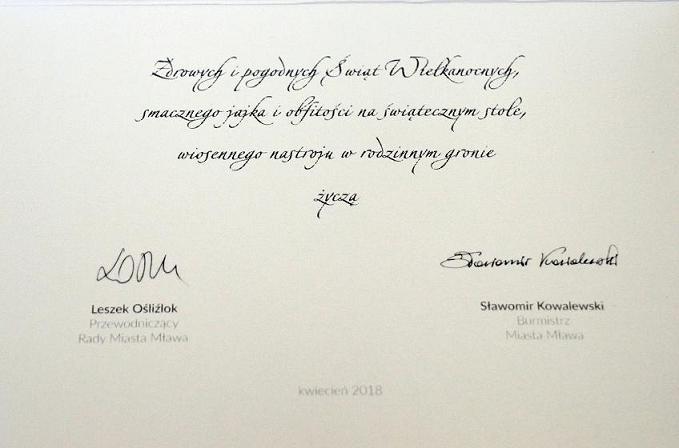 Zdrowych i pogodnych Świąt Wielkanocnych,
smacznego jajka i obfitości na świątecznym stole,
wiosennego nastroju w rodzinnym gronie
życzą
Sławomir Kowalewski
Leszek Ośliźlok
Przewodniczący
Rady Miasta Mława
Sławomir Kowalewski
Burmistrz
Miasta Mława
kwiecień 2018